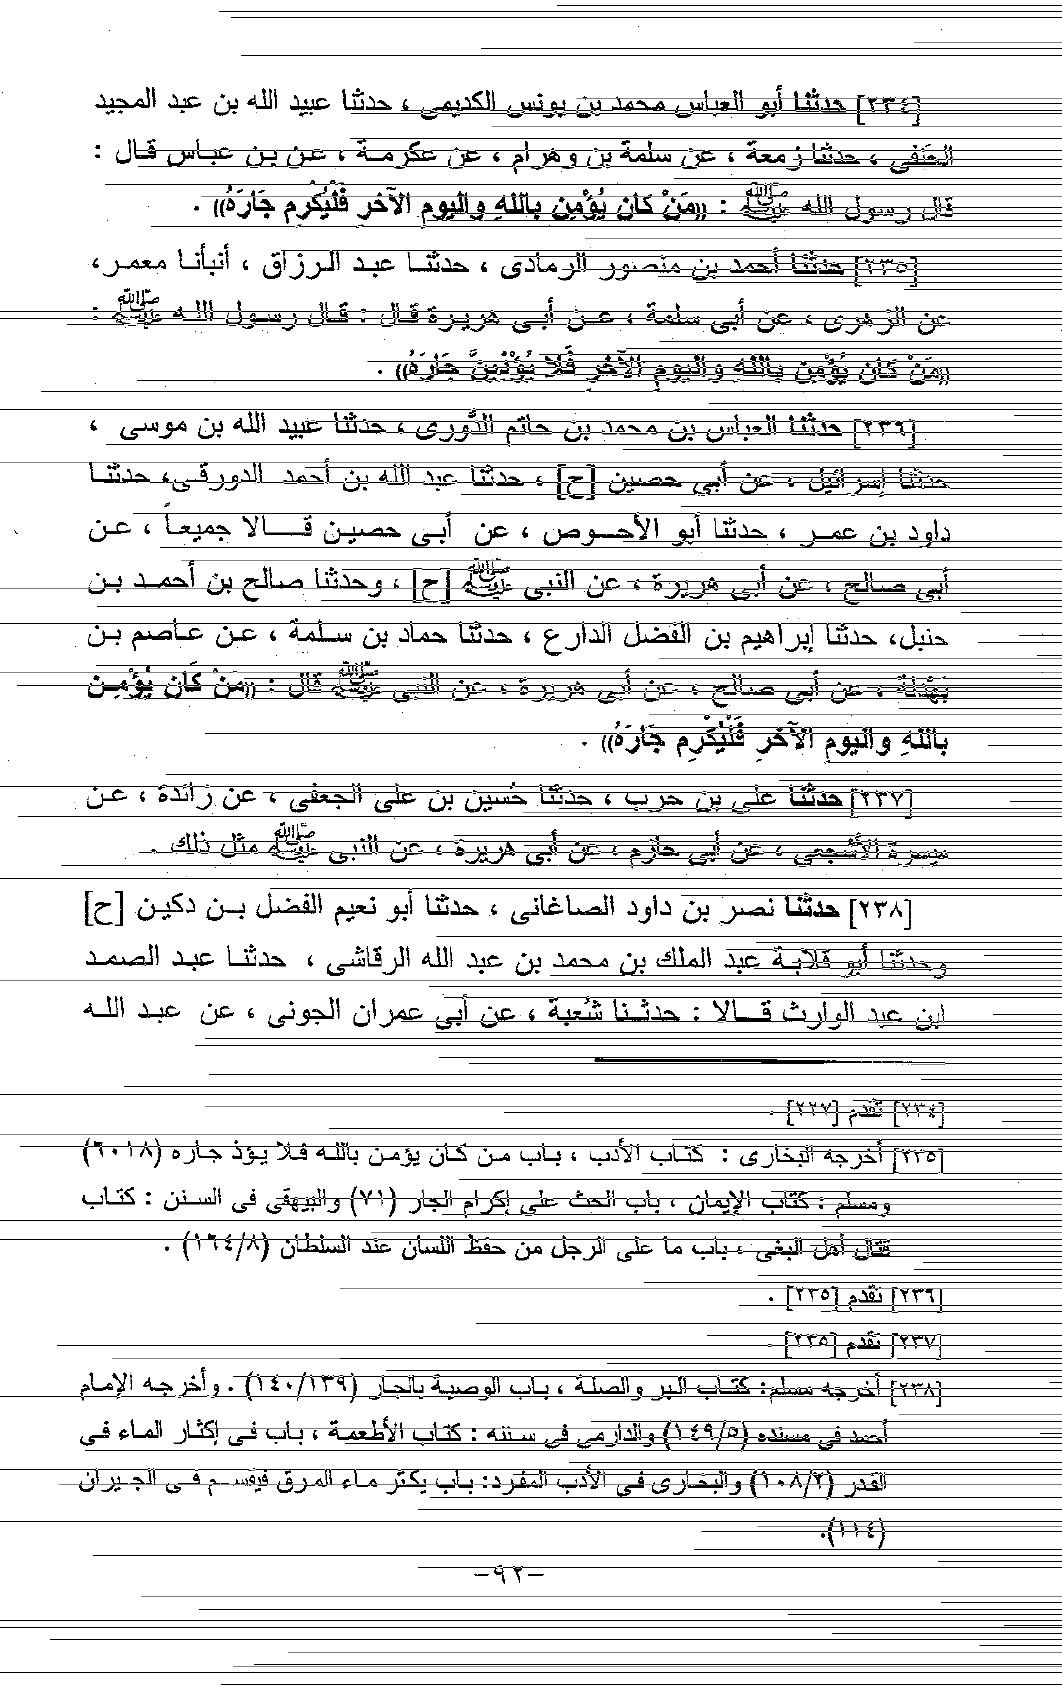 [٢٣٤] حدثنا أبو العباس محمد بن يونس الكديمى ، حدثنا عبيد الله بن عبد المجيد
الحنفى ، حدثنا زمعة ، عن سلمة بن وهرام ، عن عكرمة ، عن بن عباس قال :
قال رسول الله ﷺ : ((مَنْ كان يُؤْمِن باللهِ واليوم الآخر فَلْيُكْرِم جَارَهُ)) .
[٢٣٥] حدثنا أحمد بن منصور الرمادى ، حدثنا عبد الرزاق ، أنبأنا معمر،
عن الزهرى ، عن أبى سلمة ، عن أبى هريرة قال : قال رسول الله ﷺ :
((مَنْ كان يُؤْمِن باللهِ واليوم الآخرِ فَلا يُؤْذِيَنَّ جَارَهُ)) .
[٢٣٦] حدثنا العباس بن محمد بن حاتم الدُّورى ، حدثنا عبيد الله بن موسى ،
حدثنا إسرائيل ، عن أبى حصين [ح] ، حدثنا عبد الله بن أحمد الدورقى، حدثنا
داود بن عمر ، حدثنا أبو الأحوص ، عن أبى حصين قالا جميعاً ، عن
أبى صالح ، عن أبى هريرة ، عن النبى ﷺ [ح] ، وحدثنا صالح بن أحمد بن
حنبل، حدثنا إبراهيم بن الفضل الدارع ، حدثنا حماد بن سلمة ، عن عاصم بن
بَهْدَلة ، عن أبى صالح ، عن أبى هريرة ، عن النبى ﷺ قال : ((مَنْ كَان يُؤْمِن
باللهِ واليوم الآخرِ فَلْيُكْرِم جَارَهُ)) .
[٢٣٧] حدثنا على بن حرب ، حدثنا حُسين بن على الجعفى ، عن زائدة ، عن
ميسرة الأشجعى ، عن أبى حازم ، عن أبى هريرة ، عن النبى ﷺ مثل ذلك .
[٢٣٨] حدثنا نصر بن داود الصاغانى ، حدثنا أبو نعيم الفضل بن دكين [ح]
وحدثنا أبو قلابة عبد الملك بن محمد بن عبد الله الرقاشى ، حدثنا عبد الصمد
ابن عبد الوارث قالا : حدثنا شُعبة ، عن أبى عمران الجونى ، عن عبد الله
[٢٣٤] تقدم [٢٢٧] .
[٢٣٥] أخرجه البخارى : كتاب الأدب ، باب من كان يؤمن بالله فلا يؤذ جاره (٦٠١٨)
ومسلم : كتاب الإيمان ، باب الحث على إكرام الجار (٧١) والبيهقى فى السنن : كتاب
قتال أهل البغى ، باب ما على الرجل من حفظ اللسان عند السلطان (١٦٤/٨) .
[٢٣٦] تقدم [٢٣٥] .
[٢٣٧] تقدم [٢٣٥] .
[٢٣٨] أخرجه مسلم: كتاب البر والصلة ، باب الوصية بالجار (١٤٠/١٣٩) . وأخرجه الإمام
أحمد فى مسنده (١٤٩/٥) والدارمي فى سننه : كتاب الأطعمة ، باب فى إكثار الماء فى
القدر (١٠٨/٢) والبخارى فى الأدب المفرد: باب يكثر ماء المرق فيقسم فى الجيران
(١١٤).
-٩٢-